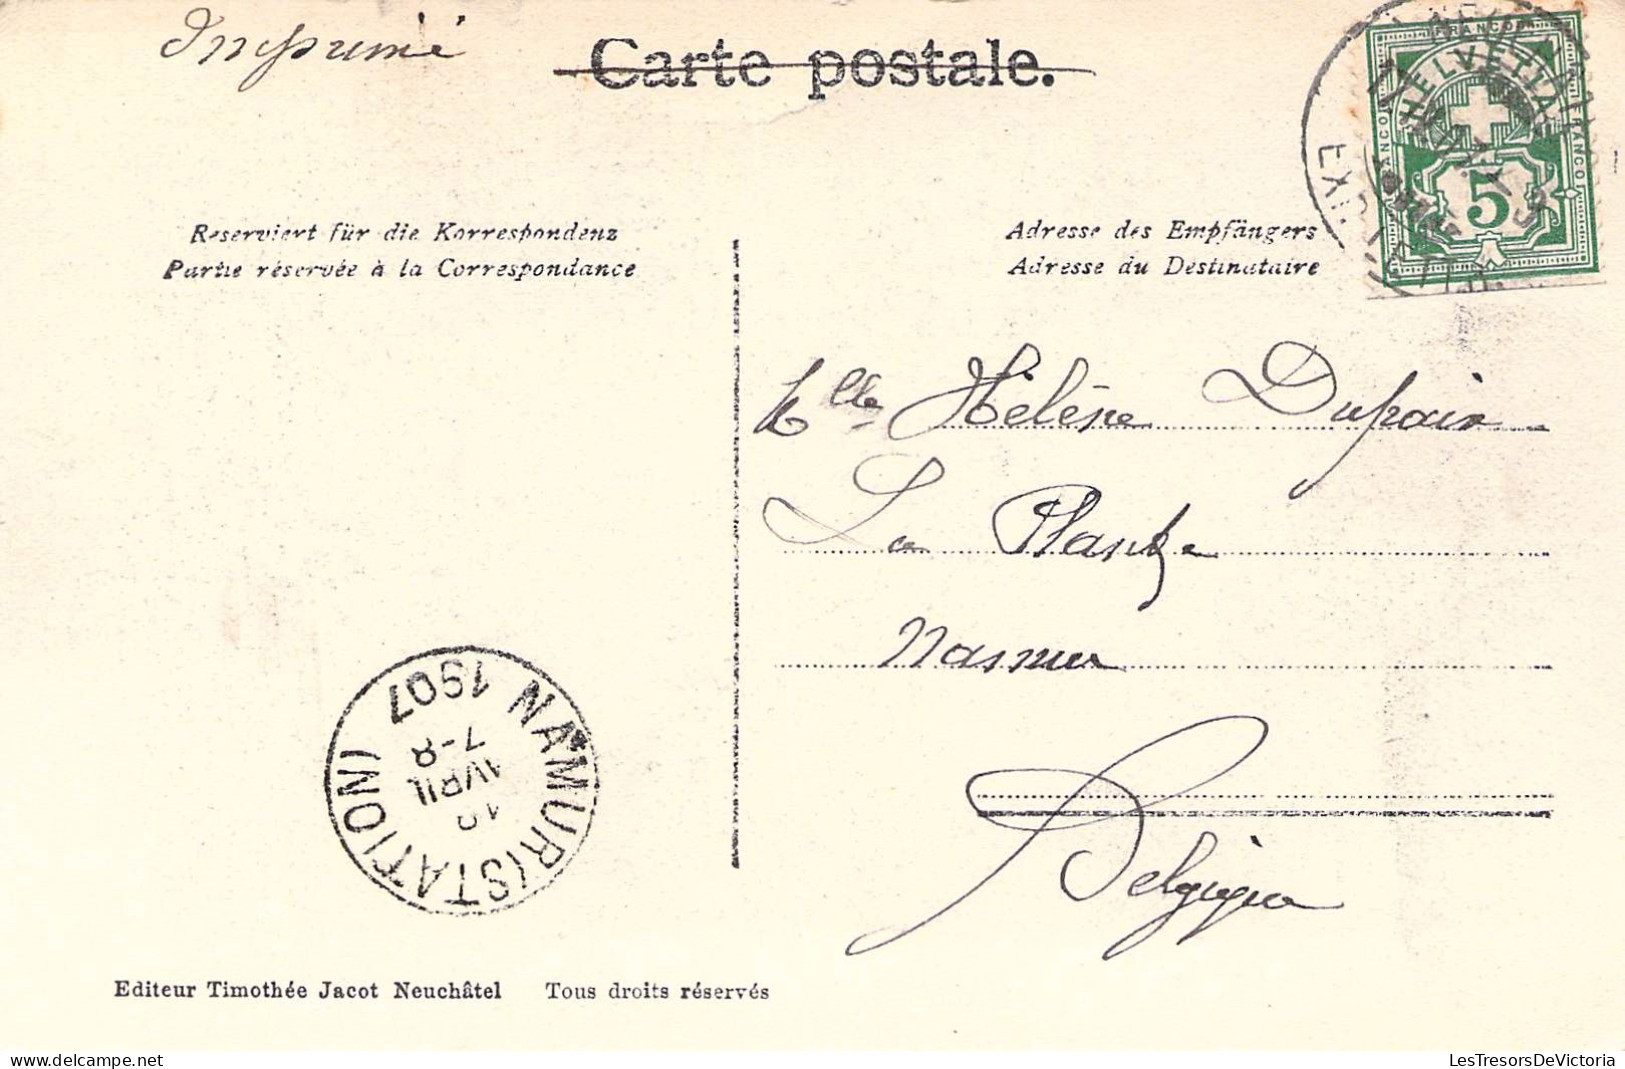 Imprimé
Carte postale.
FRANCO
HELVETIA
FRANCO FRANCO
5
Reserviert für die Korrespondenz
Partie réservée à la Correspondance
Adresse des Empfängers
Adresse du Destinataire
Mlle Hélène Dupaix
La Plante
Namur
Belgique
NAMUR (STATION)
AVRIL
7-8
1907
Editeur Timothée Jacot Neuchâtel Tous droits réservés
delcampe.net
LesTresorsDeVictoria